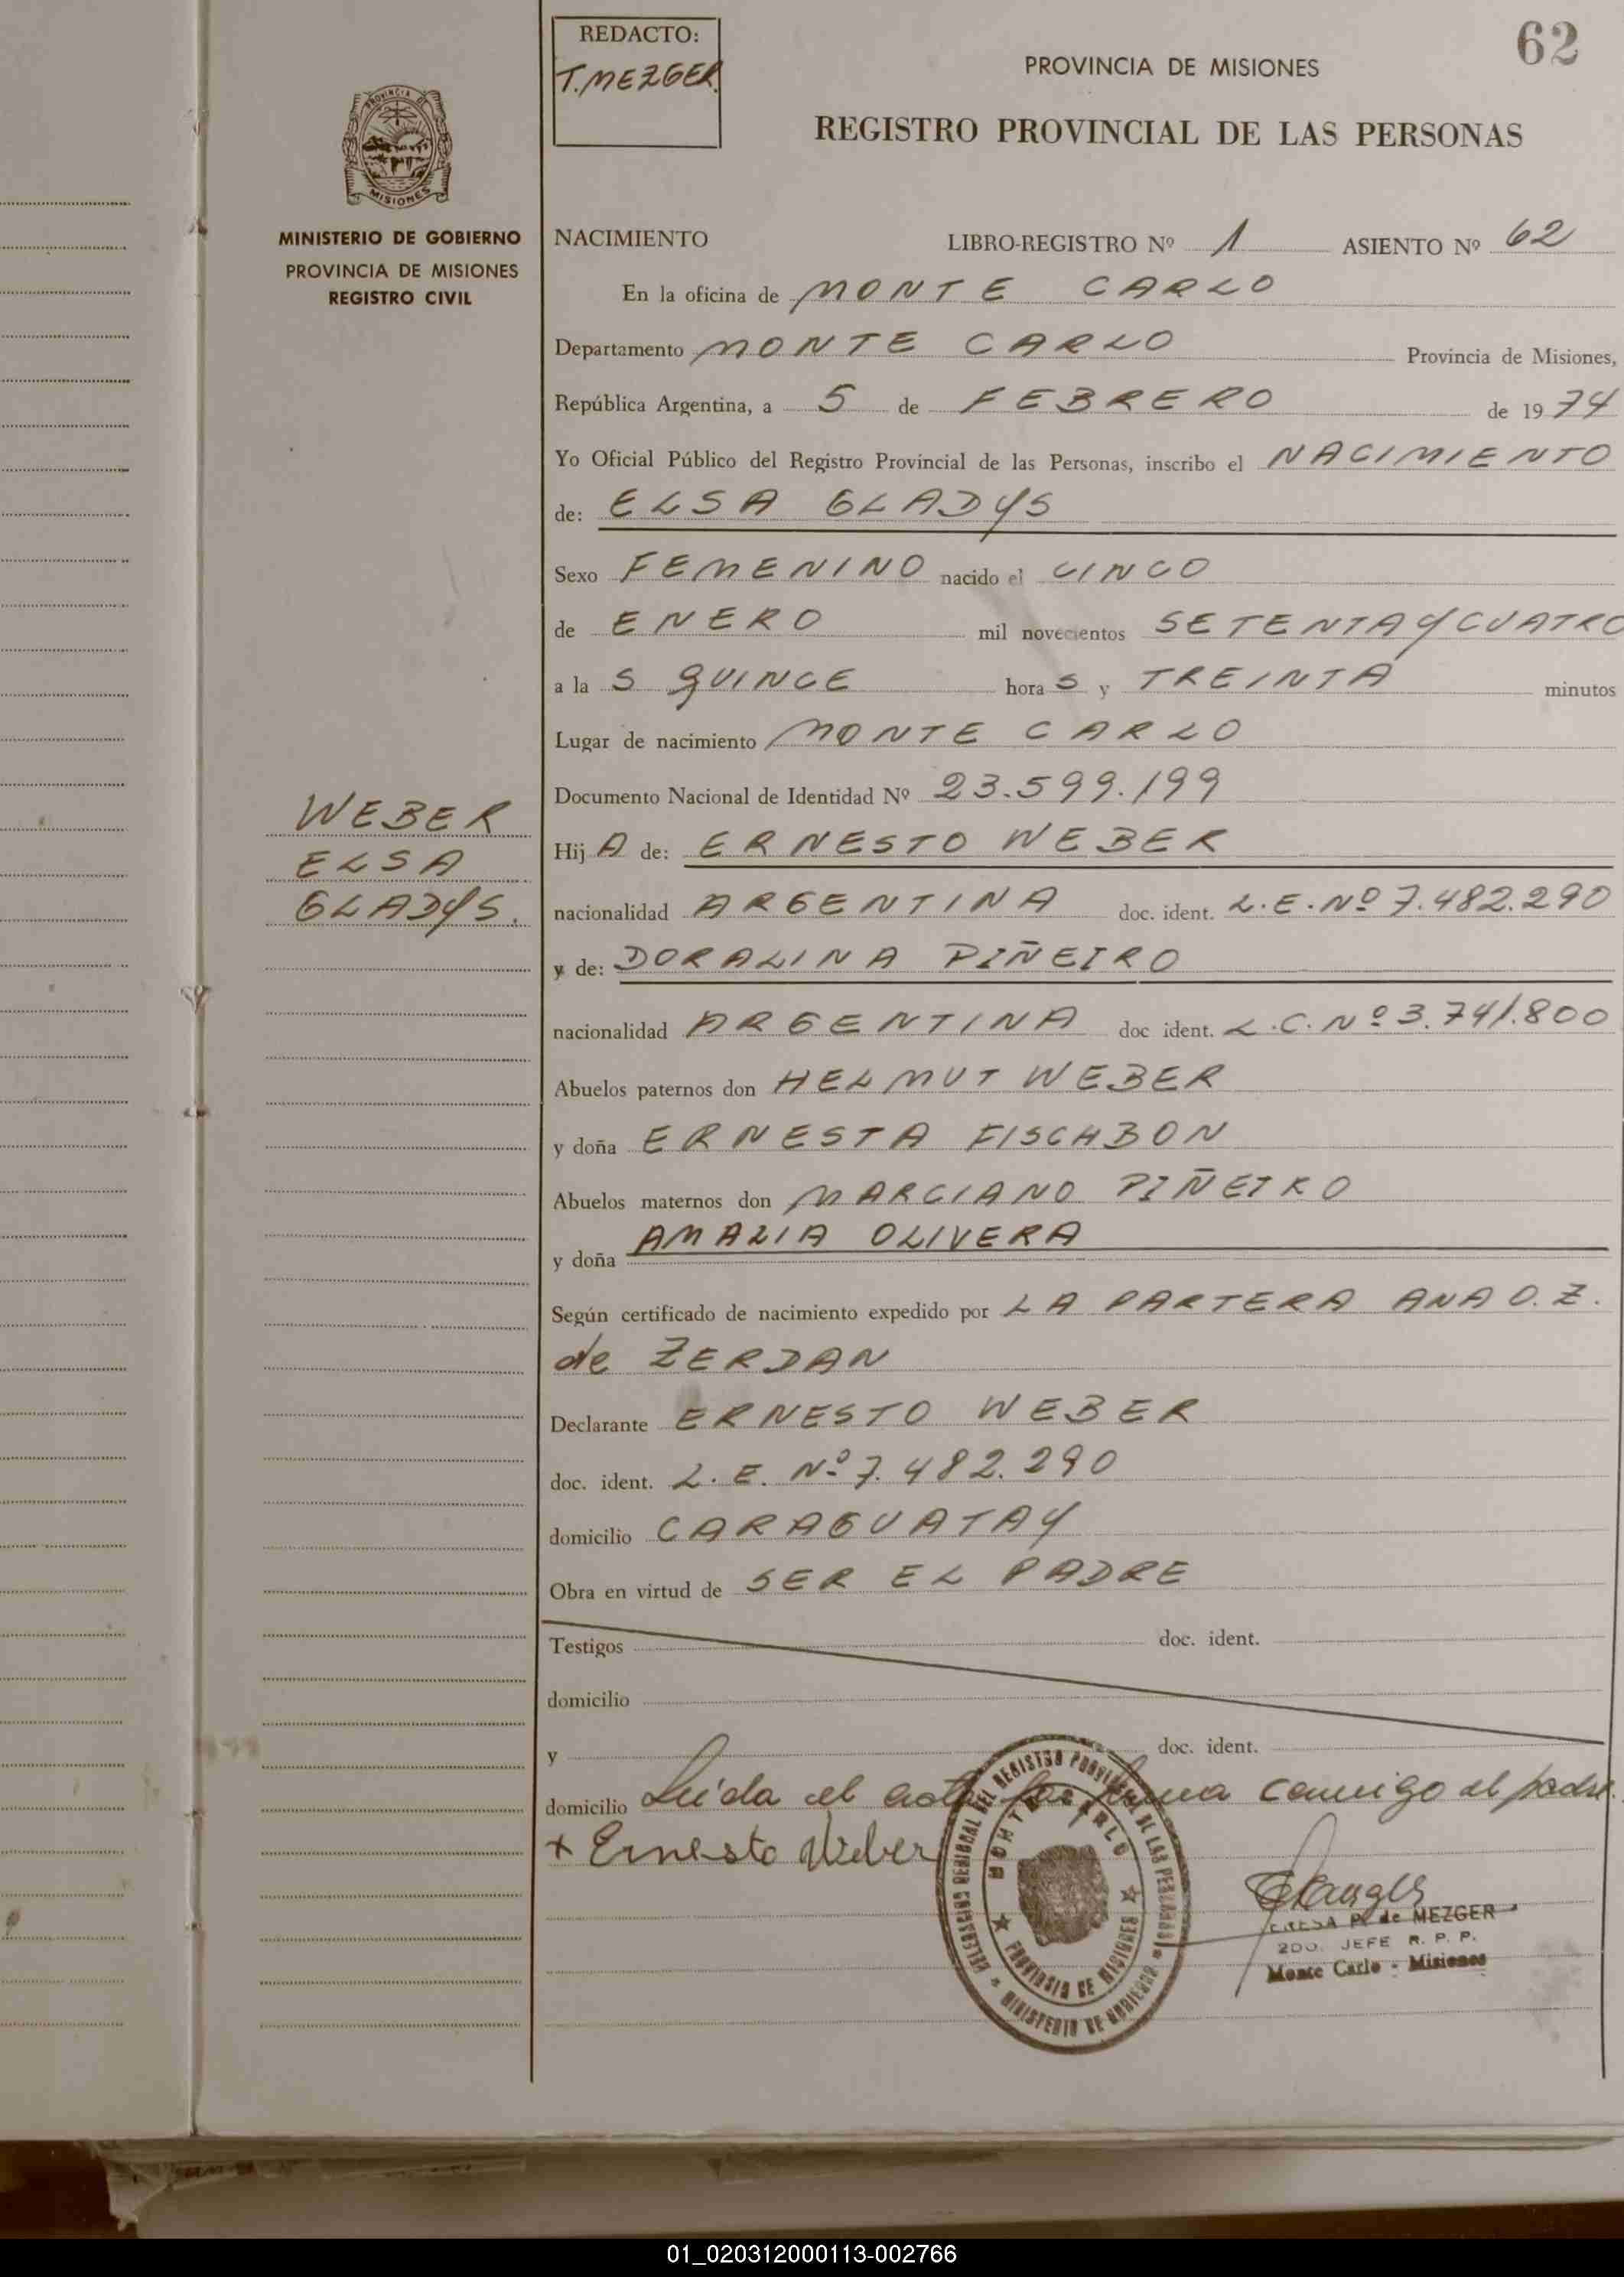 REDACTO:
T. MEZGER.
62
PROVINCIA DE MISIONES
REGISTRO PROVINCIAL DE LAS PERSONAS
PROVINCIA DE
MISIONES
MINISTERIO DE GOBIERNO
PROVINCIA DE MISIONES
REGISTRO CIVIL
NACIMIENTO LIBRO-REGISTRO Nº 1 ASIENTO Nº 62
En la oficina de MONTE CARLO
Departamento MONTE CARLO Provincia de Misiones,
República Argentina, a 5 de FEBRERO de 1974
Yo Oficial Público del Registro Provincial de las Personas, inscribo el NACIMIENTO
de: ELSA GLADYS
Sexo FEMENINO nacido el CINCO
de ENERO mil novecientos SETENTA Y CUATRO
a la S QUINCE hora S y TREINTA minutos
Lugar de nacimiento MONTE CARLO
Documento Nacional de Identidad Nº 23.599.199
WEBER
ELSA
GLADYS.
Hij A de: ERNESTO WEBER
nacionalidad ARGENTINA doc. ident. L.E. Nº 7.482.290
y de: DORALINA PIÑEIRO
nacionalidad ARGENTINA doc ident. L.C. Nº 3.741.800
Abuelos paternos don HELMUT WEBER
y doña ERNESTA FISCHBON
Abuelos maternos don MARCIANO PIÑEIRO
y doña AMALIA OLIVERA
Según certificado de nacimiento expedido por LA PARTERA ANA O. Z.
de ZERDAN
Declarante ERNESTO WEBER
doc. ident. L. E. Nº 7.482.290
domicilio CARAGUATAY
Obra en virtud de SER EL PADRE
Testigos doc. ident.
domicilio
y doc. ident.
domicilio Leída el acta la firma conmigo el padre.
+ Ernesto Weber
DELEGACION REGIONAL DEL REGISTRO PROVINCIAL DE LAS PERSONAS
MINISTERIO DE GOBIERNO
MONTE CARLO
PROVINCIA DE MISIONES
TERESA P. de MEZGER
2DO. JEFE R. P. P.
Monte Carlo - Misiones
01_020312000113-002766